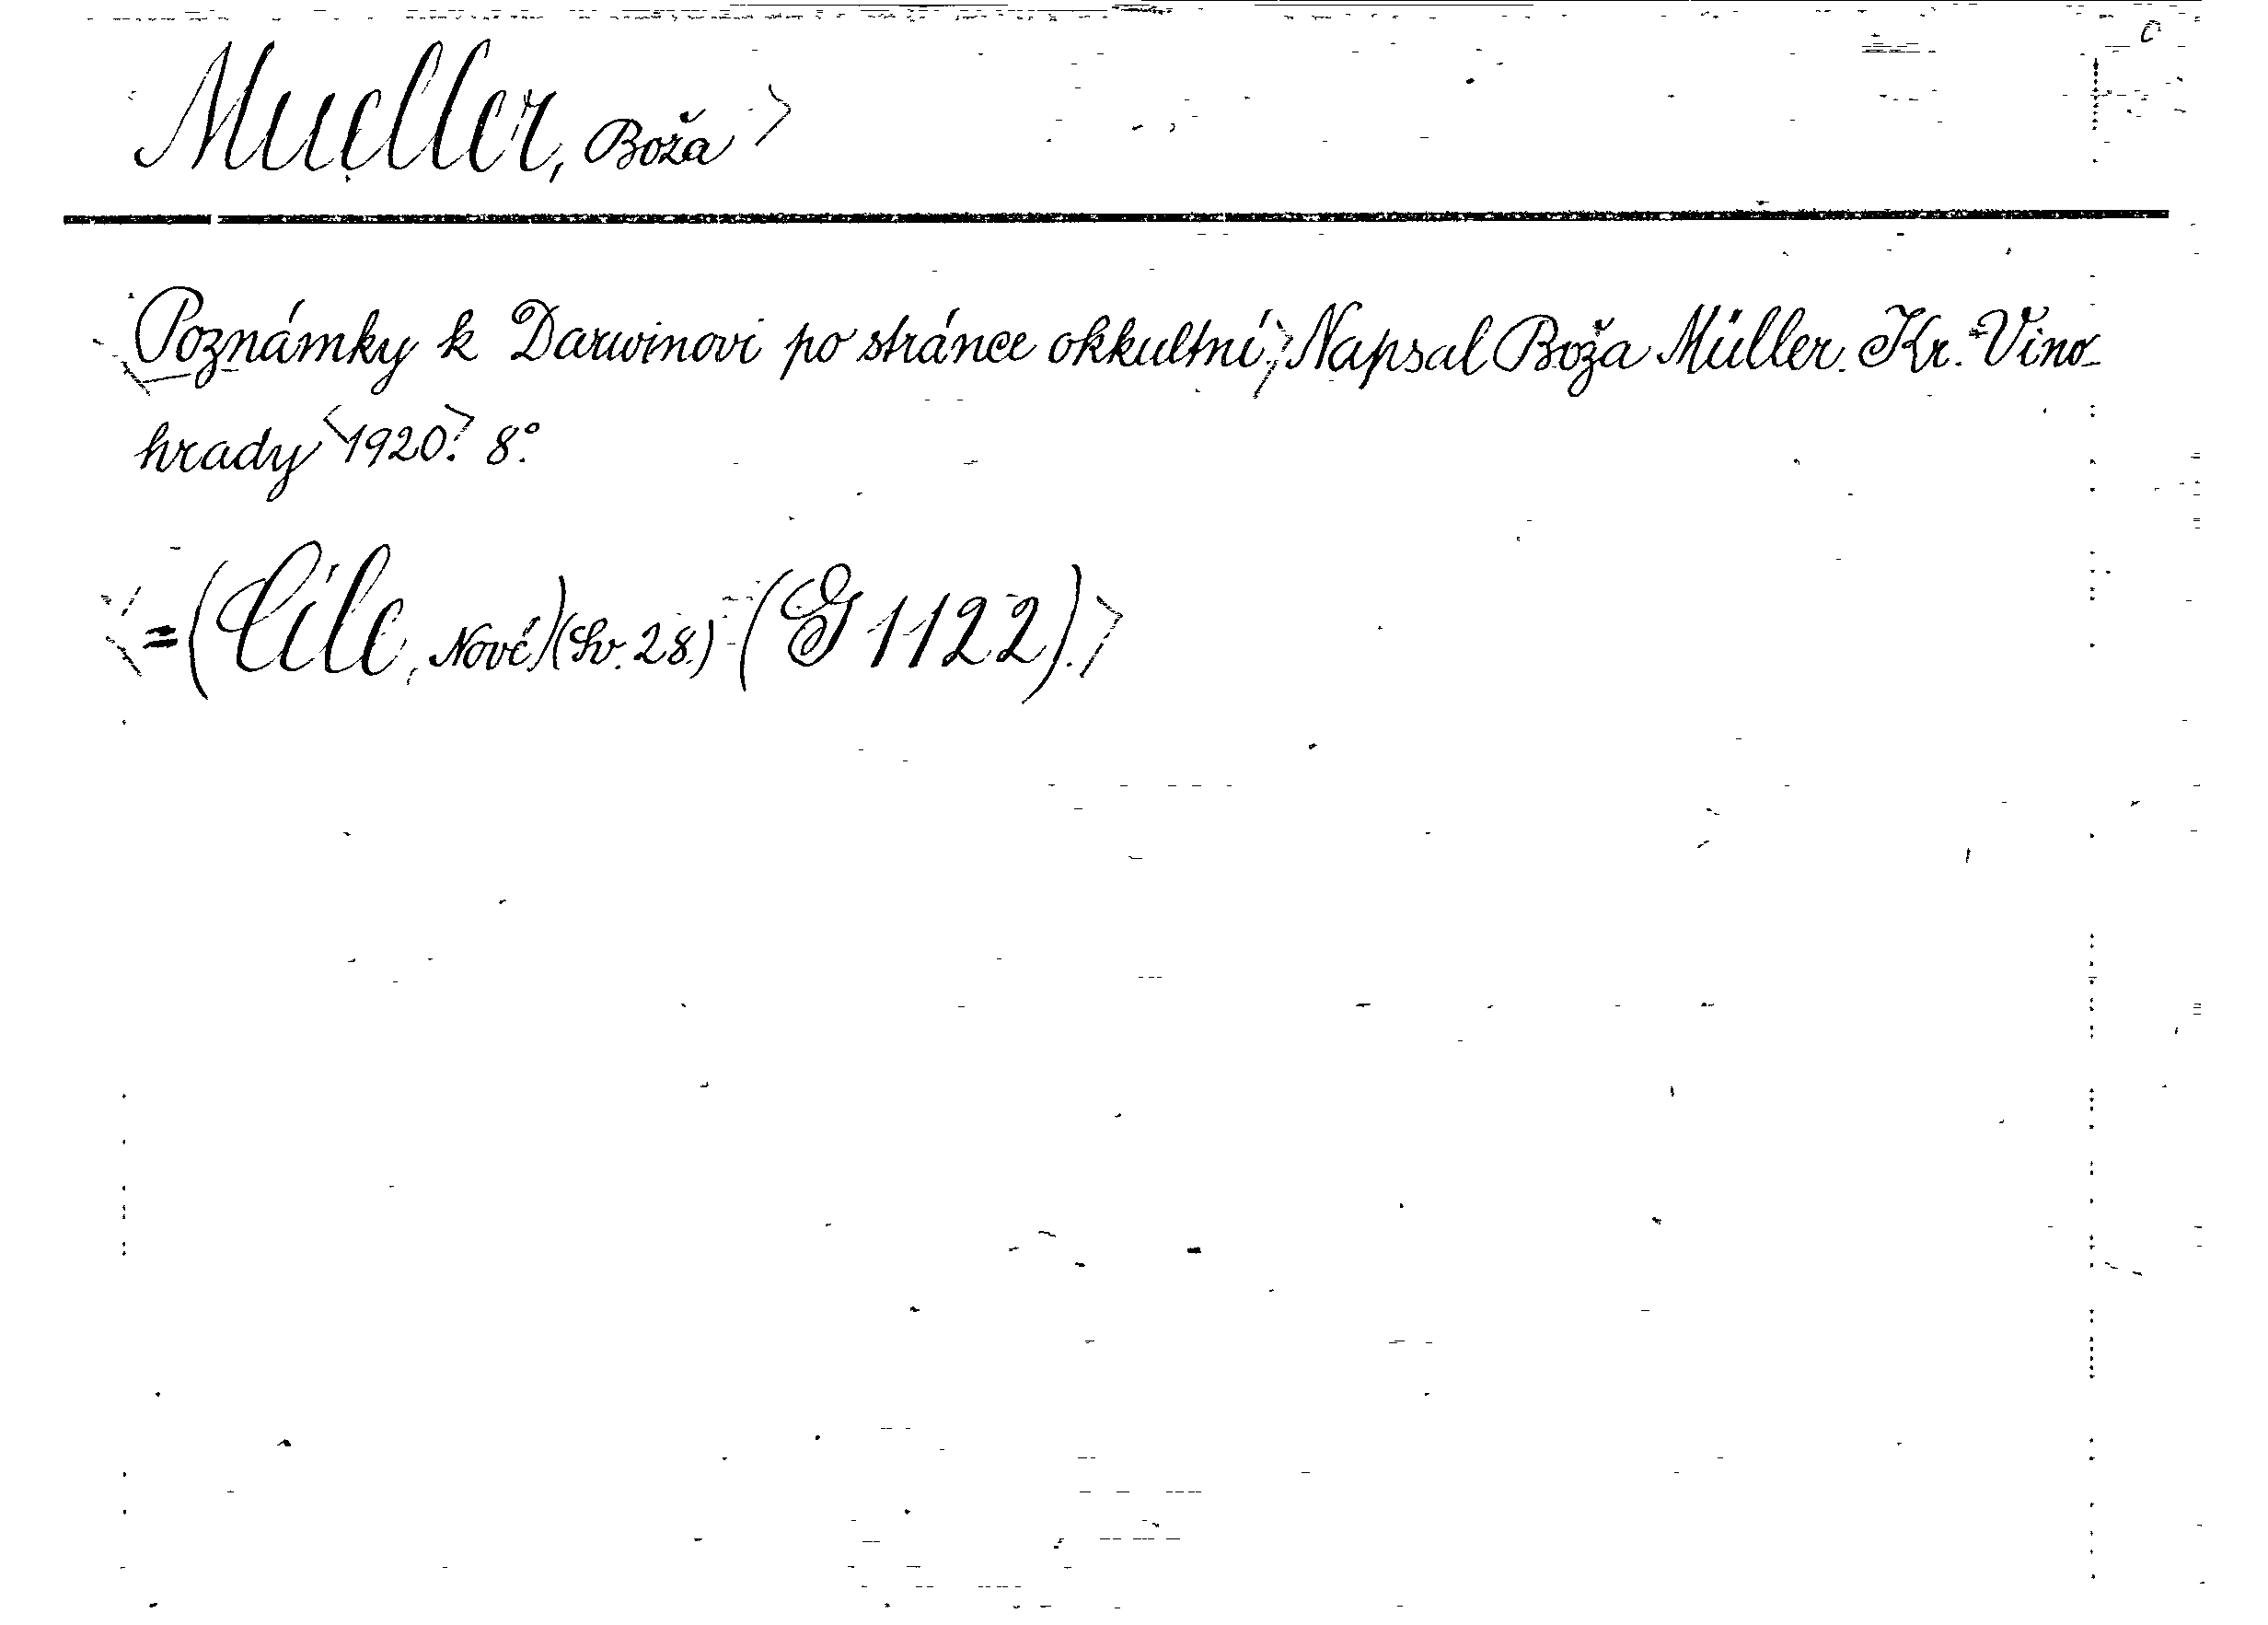 Mueller, Boža >
Poznámky k Darwinovi po stránce okkultní,> Napsal Boža Müller. Kr. Vino-
hrady <1920>. 8°.
<=(Cíle, Nové)(Sv. 28.) (G 1122).>